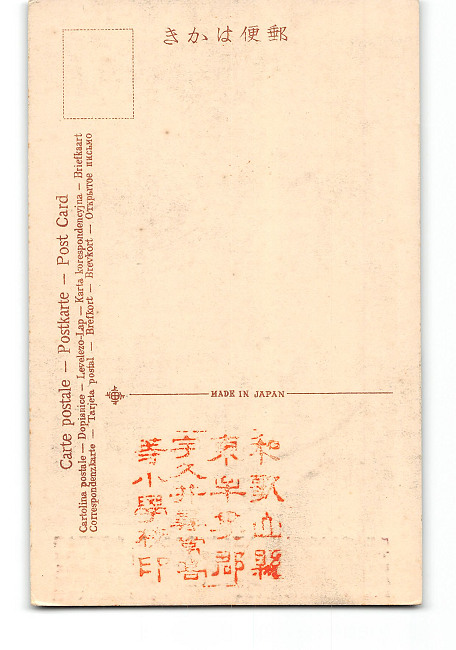 郵便はかき
Carte postale — Postkarte — Post Card
Cartolina postale — Dopisnice — Levelezo-Lap — Karta korespondencyjna — Briefkaart
Correspondenzkarte — Tarjeta postal — Brefkort — Brevkort — Открытое письмо
MADE IN JAPAN
和歌山縣
東牟婁郡
宇久井尋常高
等小學校印